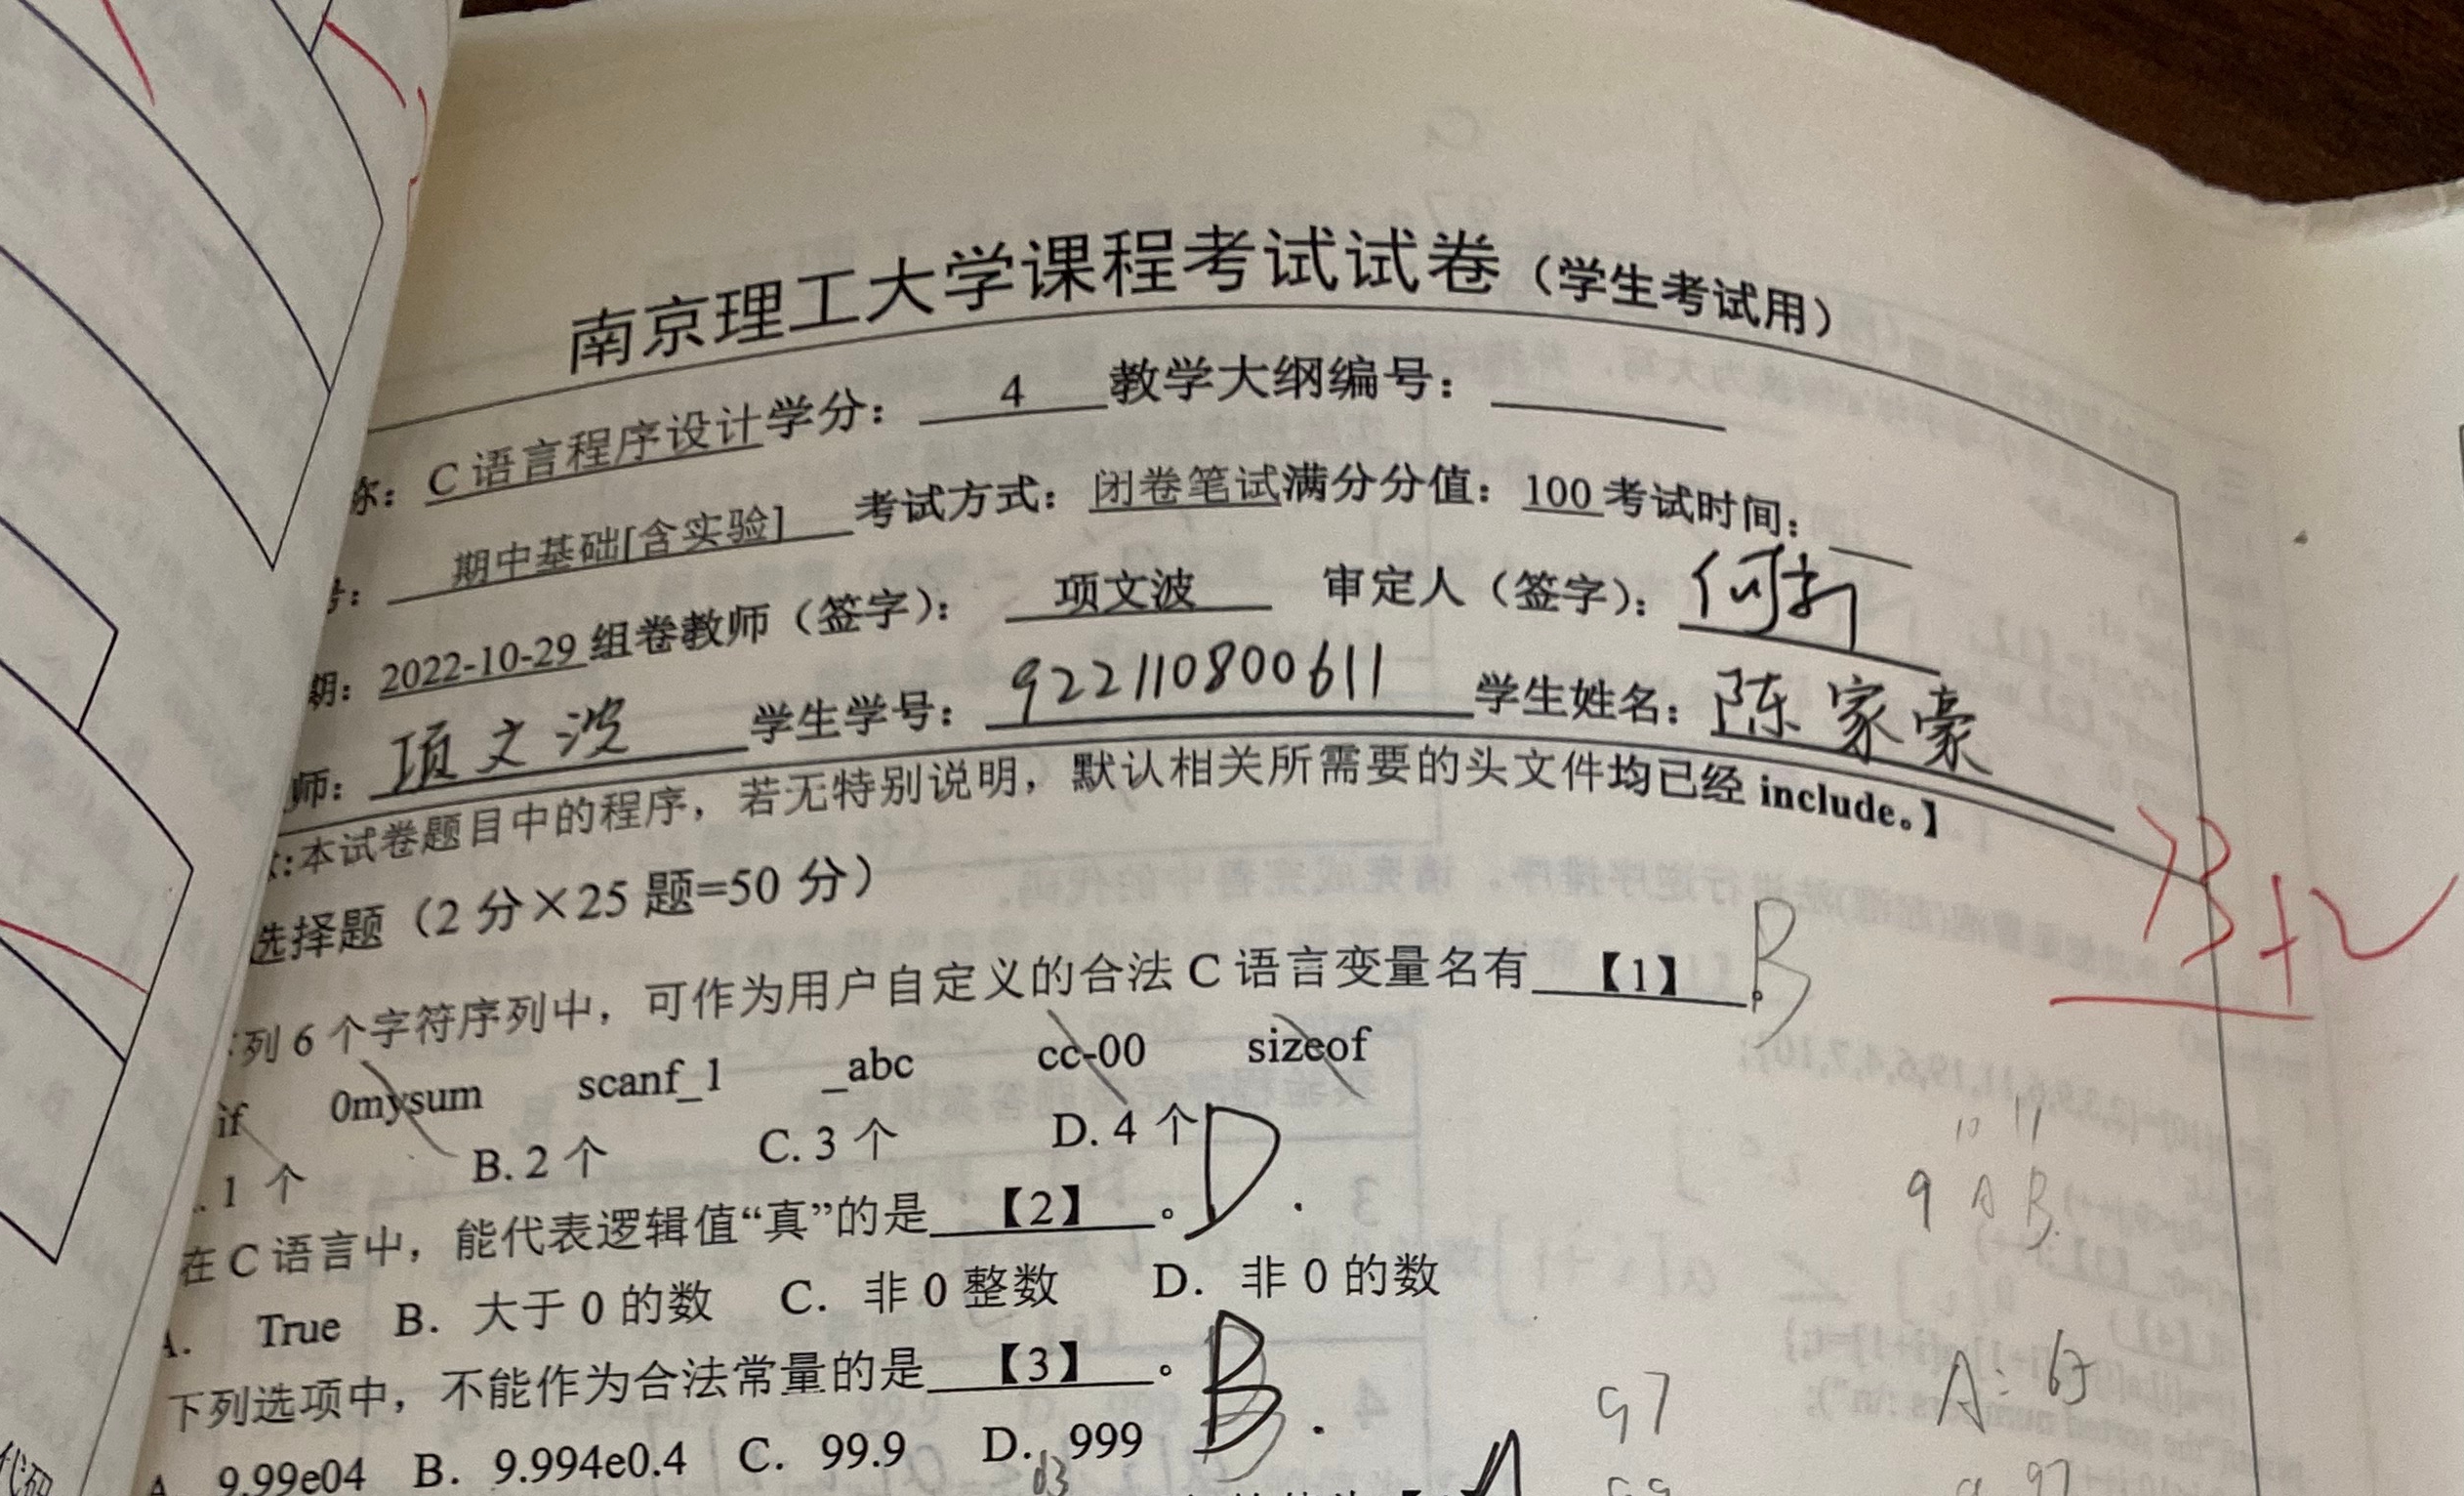 南京理工大学课程考试试卷（学生考试用）
称： C 语言程序设计学分： 4 教学大纲编号：
号： 期中基础[含实验] 考试方式：闭卷笔试满分分值：100 考试时间：
期：2022-10-29 组卷教师（签字）： 项文波 审定人（签字）：何新
师：项文波 学生学号：922110800611 学生姓名：陈家豪
:本试卷题目中的程序，若无特别说明，默认相关所需要的头文件均已经 include。】
选择题（2 分×25 题=50 分）
73+2
列 6 个字符序列中，可作为用户自定义的合法 C 语言变量名有 【1】 。 B
if 0mysum scanf_1 _abc cc-00 sizeof
. 1 个 B. 2 个 C. 3 个 D. 4 个
10 11
9 A B
在 C 语言中，能代表逻辑值“真”的是 【2】 。 D.
A. True B. 大于 0 的数 C. 非 0 整数 D. 非 0 的数
下列选项中，不能作为合法常量的是 【3】 。 B.
97 A: 65
A 9.99e04 B. 9.994e0.4 C. 99.9 D. 999
97
代码